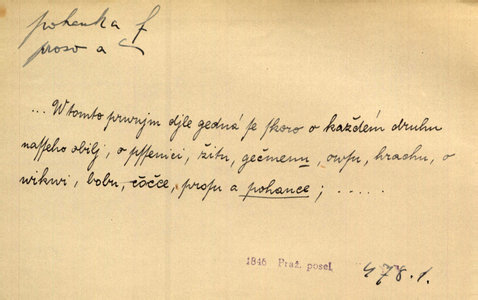 pohanka f
proso a
... W tomto prwnjm djle gedná se skoro o každém druhu
nasseho obilj, o pssenici, žitu, gečmenu, owsu, hrachu, o
wikwi, bobu, čočce, prosu a pohance; .....
1846 Praž. posel
478.1.